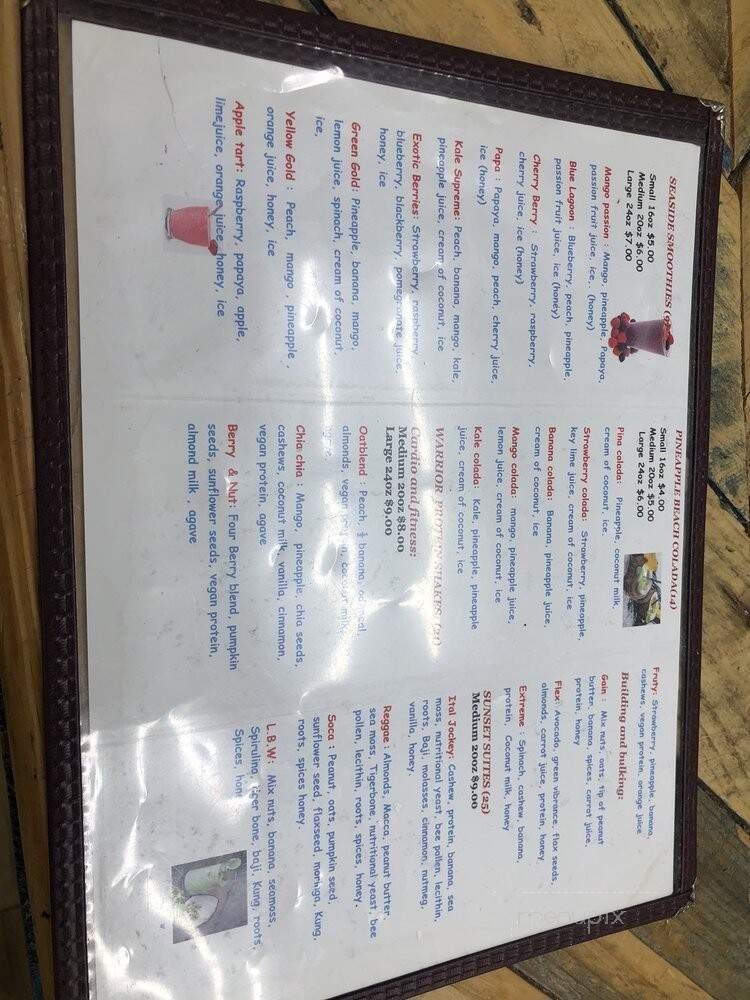 SEASIDE SMOOTHIES (9)
Small 16oz $5.00
Medium 20oz $6.00
Large 24oz $7.00
Mango passion : Mango, pineapple, Papaya,
passion fruit juice, ice,. (honey)
Blue Lagoon : Blueberry, peach, pineapple,
passion fruit juice, ice (honey)
Cherry Berry : Strawberry, raspberry,
cherry juice, ice (honey)
Papa : Papaya, mango, peach, cherry juice,
ice (honey)
Kale Supreme: Peach, banana, mango, kale,
pineapple juice, cream of coconut, ice
Exotic Berries: Strawberry, raspberry
blueberry, blackberry, pomegranate juice,
honey, ice
Green Gold: Pineapple, banana, mango,
lemon juice, spinach, cream of coconut,
ice,
Yellow Gold : Peach, mango , pineapple ,
orange juice, honey, ice
Apple tart: Raspberry, papaya, apple,
limejuice, orange juice, honey, ice
PINEAPPLE BEACH COLADA(14)
Small 16oz $4.00
Medium 20oz $5.00
Large 24oz $6.00
Pina calada: Pineapple, coconut milk,
cream of coconut, ice.
Strawberry colada: Strawberry, pineapple,
key lime juice, cream of coconut, ice
Banana colada: Banana, pineapple juice,
cream of coconut, ice
Mango colada: mango, pineapple juice,
lemon juice, cream of coconut, ice
Kale colada: Kale, pineapple, pineapple
juice, cream of coconut, ice
WARRIOR PROTEIN SHAKES
Cardio and fitness:
Medium 20oz $8.00
Large 24oz $9.00
Oatblend : Peach, ½ banana, oatmeal,
almonds, vegan protein, coconut milk,
Chia chia : Mango, pineapple, chia seeds,
cashews, coconut milk, vanilla, cinnamon,
vegan protein, agave
Berry & Nut: Four Berry blend, pumpkin
seeds, sunflower seeds, vegan protein,
almond milk , agave
Fruty: Strawberry, pineapple, banana,
cashews, vegan protein, orange juice
Building and bulking:
Gain : Mix nuts, oats, tip of peanut
butter, banana, spices, carrot juice,
protein, honey
Flex: Avocado, green vibrance, flax seeds,
almonds, carrot juice, protein, honey
Extreme : Spinach, cashew, banana,
protein, Coconut milk, honey
SUNSET SUITES (25)
Medium 20oz $9.00
Ital Jockey: Cashew, protein, banana, sea
moss, nutritional yeast, bee pollen, lecithin,
roots, Baji, molasses, cinnamon, nutmeg,
vanilla, honey.
Reggae : Almonds, Macca, peanut butter,
sea moss, Tigerbone, nutritional yeast, bee
pollen, lecithin, roots, spices, honey.
Soca : Peanut, oats, pumpkin seed,
sunflower seed, flaxseed, moringa, Kung,
roots, spices honey.
L.B.W: Mix nuts, banana, seamoss,
Spirulina, tiger bone, baji, Kung, roots,
Spices, honey
menupix